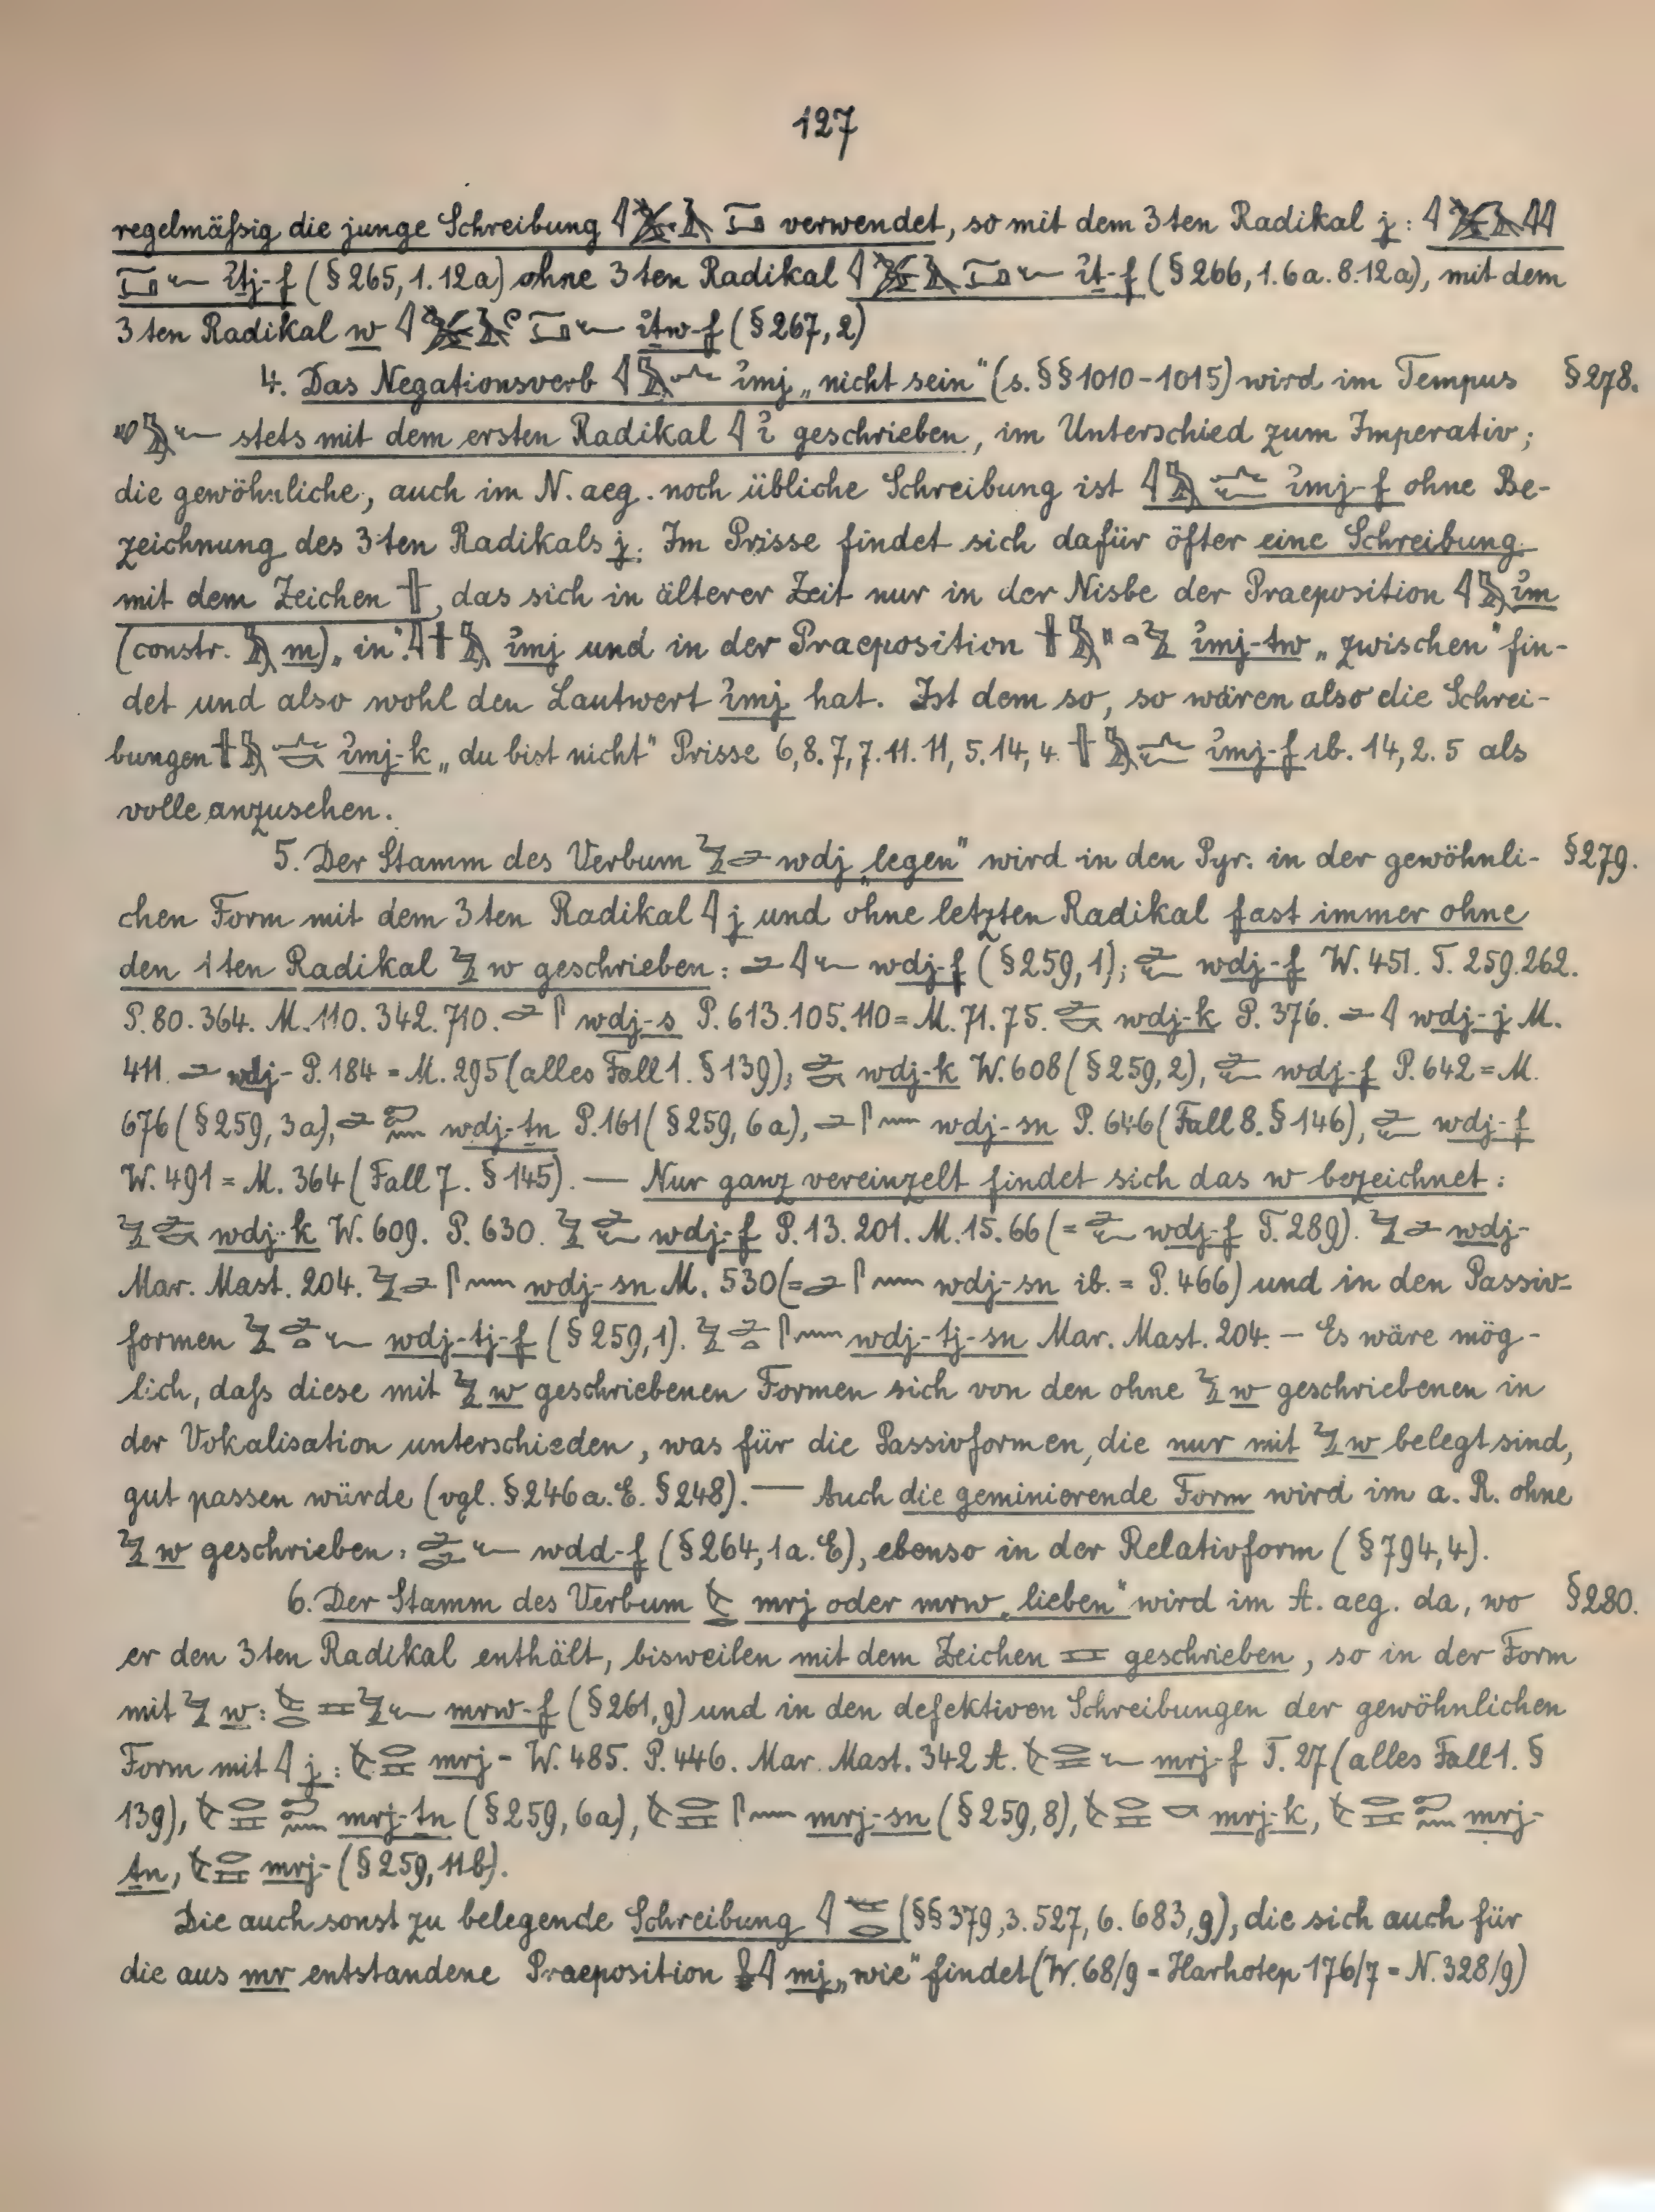 127
regelmäßig die junge Schreibung verwendet, so mit dem 3ten Radikal j:
iṯj-f (§265, 1. 12a) ohne 3ten Radikal iṯ-f (§266, 1. 6a. 8. 12a), mit dem
3ten Radikal w iṯw-f (§267, 2)
4. Das Negationsverb imj „nicht sein“ (s. §§1010-1015) wird im Tempus §278.
stets mit dem ersten Radikal i geschrieben, im Unterschied zum Imperativ;
die gewöhnliche, auch im N. aeg. noch übliche Schreibung ist imj-f ohne Be-
zeichnung des 3ten Radikals j. Im Prisse findet sich dafür öfter eine Schreibung
mit dem Zeichen, das sich in älterer Zeit nur in der Nisbe der Praeposition im
(constr. m) „in“: imj und in der Praeposition imj-tw „zwischen“ fin-
det und also wohl den Lautwert imj hat. Ist dem so, so wären also die Schrei-
bungen imj-k „du bist nicht“ Prisse 6,8. 7,7. 11. 11,5. 14,4. imj-f ib. 14,2. 5 als
volle anzusehen.
5. Der Stamm des Verbum wdj „legen“ wird in den Pyr. in der gewöhnli- §279.
chen Form mit dem 3ten Radikal j und ohne letzten Radikal fast immer ohne
den 1ten Radikal w geschrieben: wdj-f (§259, 1); wdj-f W. 451. T. 259. 262.
P. 80. 364. M. 110. 342. 710. wdj-s P. 613. 105. 110 = M. 71. 75. wdj-k P. 376. wdj-j M.
411. wdj- P. 184 = M. 295 (alles Fall 1. §139); wdj-k W. 608 (§259, 2), wdj-f P. 642 = M.
676 (§259, 3a), wdj-ṯn P. 161 (§259, 6a), wdj-sn P. 646 (Fall 8. §146), wdj-f
W. 491 = M. 364 (Fall 7. §145). — Nur ganz vereinzelt findet sich das w bezeichnet:
wdj-k W. 609. P. 630. wdj-f P. 13. 201. M. 15. 66 (= wdj-f T. 289). wdj-
Mar. Mast. 204. wdj-sn M. 530 (= wdj-sn ib. = P. 466) und in den Passiv-
formen wdj-tj-f (§259, 1). wdj-tj-sn Mar. Mast. 204. — Es wäre mög-
lich, daß diese mit w geschriebenen Formen sich von den ohne w geschriebenen in
der Vokalisation unterschieden, was für die Passivformen, die nur mit w belegt sind,
gut passen würde (vgl. §246 a. E. §248). — Auch die geminierende Form wird im a. R. ohne
w geschrieben: wdd-f (§264, 1 a. E), ebenso in der Relativform (§794, 4).
6. Der Stamm des Verbum mrj oder mrw „lieben“ wird im A. aeg. da, wo §280.
er den 3ten Radikal enthält, bisweilen mit dem Zeichen geschrieben, so in der Form
mit w: mrw-f (§261, 9) und in den defektiven Schreibungen der gewöhnlichen
Form mit j: mrj- W. 485. P. 446. Mar. Mast. 342 A. mrj-f T. 27 (alles Fall 1. §
139), mrj-ṯn (§259, 6a), mrj-sn (§259, 8), mrj-k, mrj-
ṯn, mrj- (§259, 11b).
Die auch sonst zu belegende Schreibung (§§379, 3. 527, 6. 683, 9), die sich auch für
die aus mr entstandene Praeposition mj „wie“ findet (W. 68/9 = Harhotep 176/7 = N. 328/9)